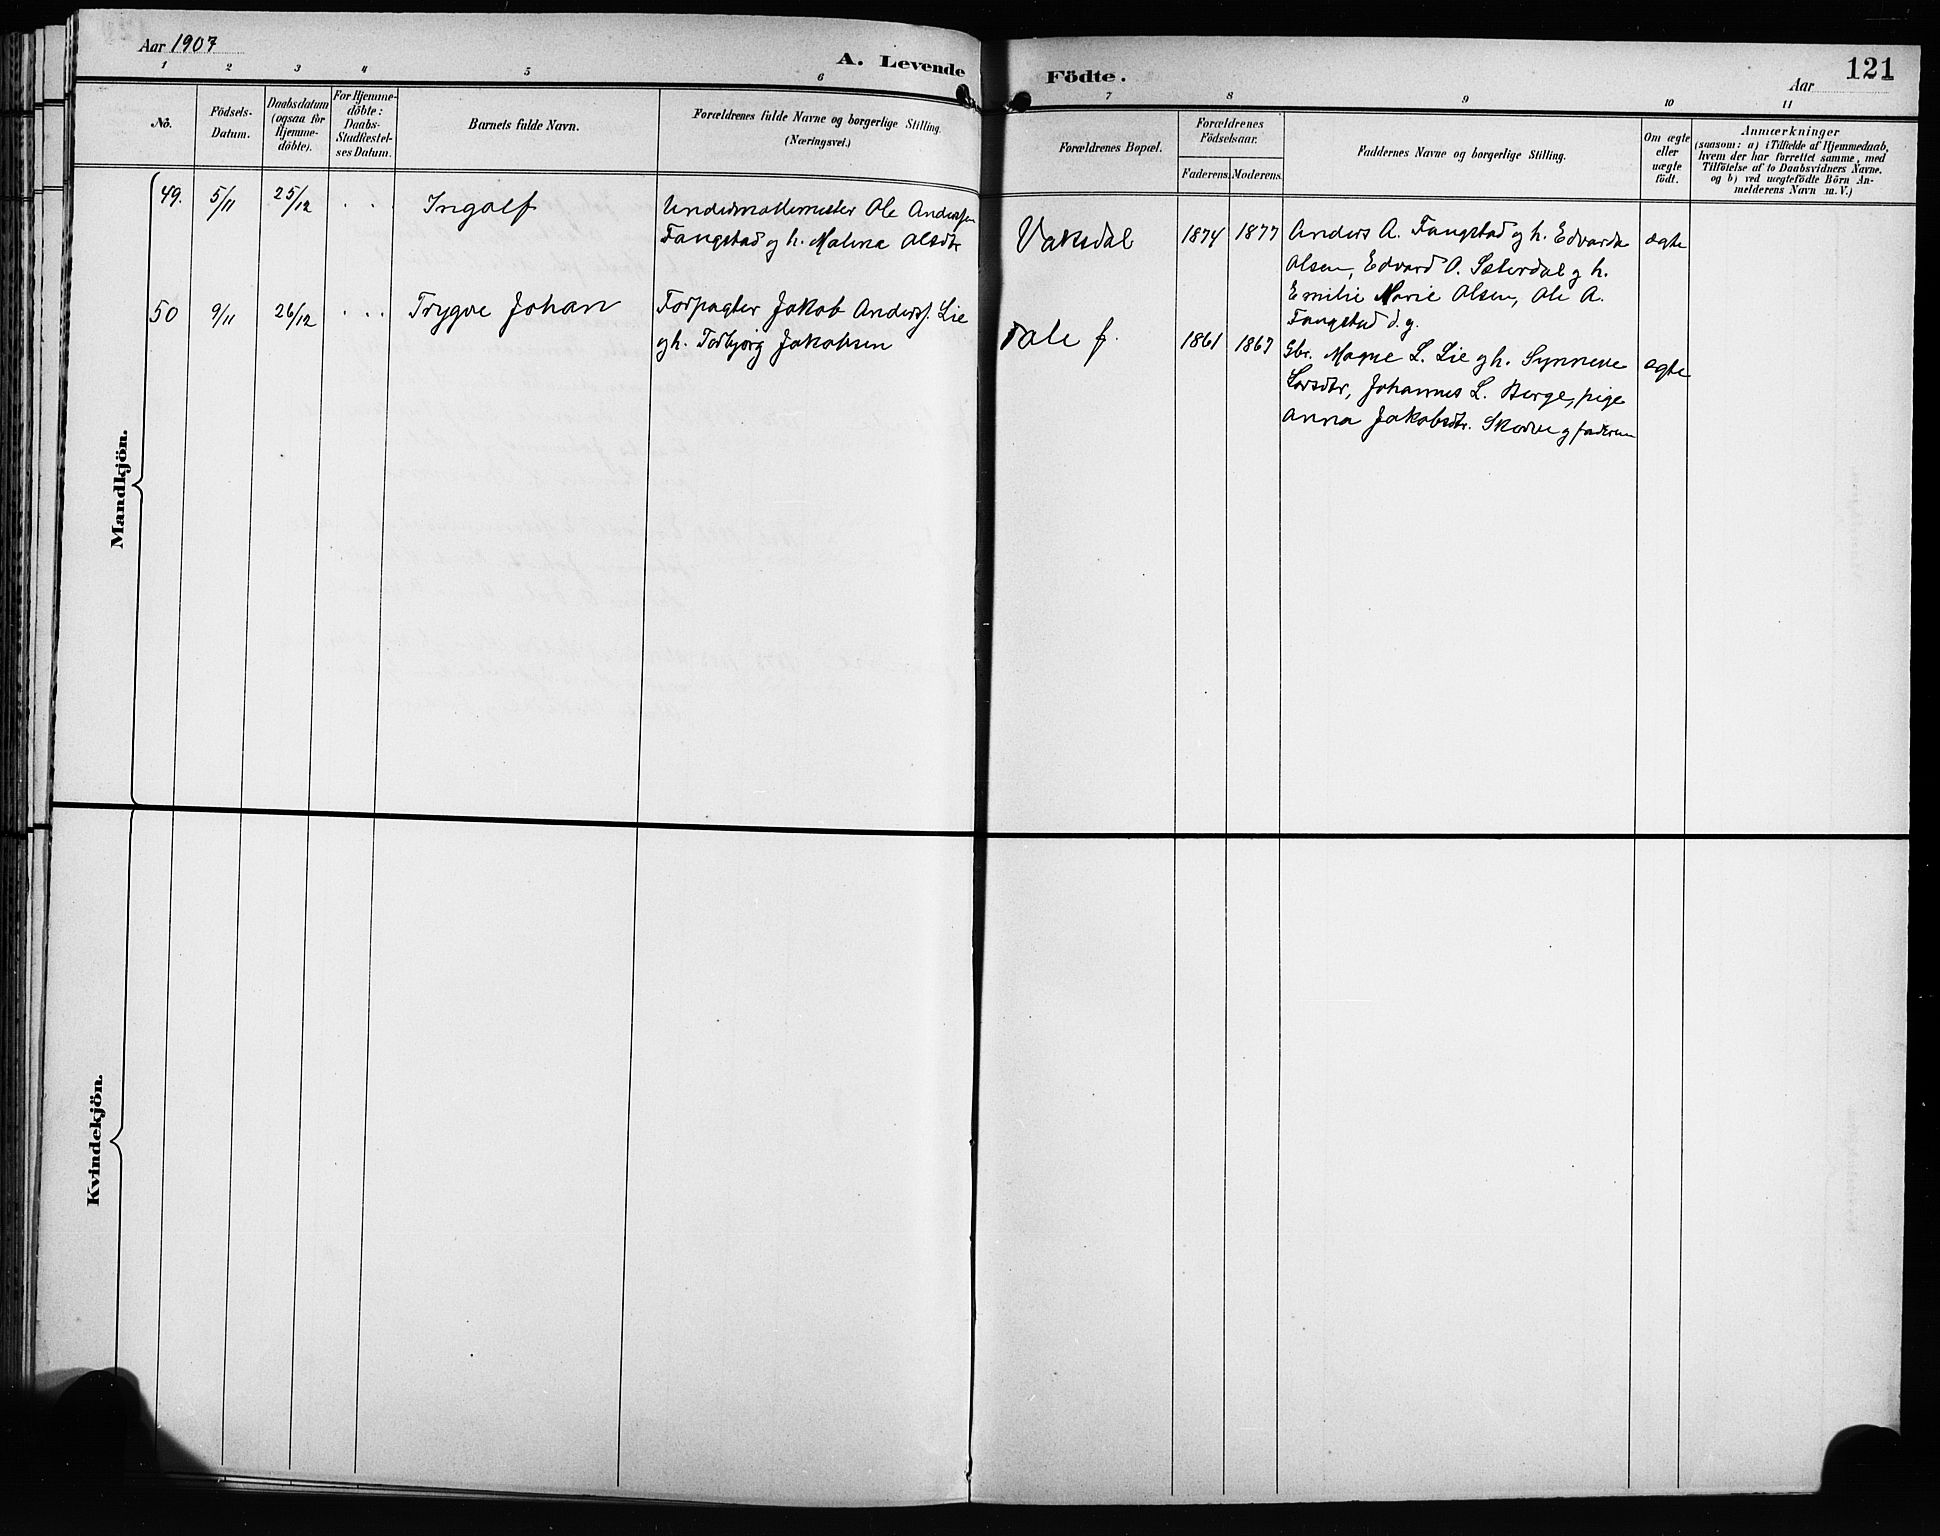 Aar 1907
A. Levende
Födte.
Aar
121
1 2 3 4 5 6 7 8 9 10 11
No.
Födsels-
Datum.
Daabsdatum
(ogsaa for
Hjemme-
döbte).
For Hjemme-
döbte:
Daabs-
Stadfestel-
ses Datum.
Barnets fulde Navn.
Forældrenes fulde Navne og borgerlige Stilling.
(Næringsvei.)
Forældrenes Bopæl.
Forældrenes
Födselsaar.
Faderens. Moderens.
Faddernes Navne og borgerlige Stilling.
Om ægte
eller
uægte
födt.
Anmærkninger
(saasom: a) i Tilfælde af Hjemmedaab,
hvem der har forrettet samme, med
Tilföielse af to Daabsvidners Navne.
og b) ved uægtefödte Börn An-
melderens Navn m. V.)
Mandkjön.
49. 5/11 25/12 . . . Ingolf
Undermøllemester Ole Anderssen
Fangstad og h. Malena Olsdtr
Vaksdal 1874 1877
Anders A. Fangstad og h. Edvarda
Olsen, Edvard O. Sæterdal og h.
Emilie Marie Olsen, Ole A.
Fangstad d.y.
ægte
50 9/11 26/12 . . . Trygve Johan
Forpagter Jakob Anders. Lie
og h. Torbjørg Jakobsen
Dale f. 1861 1867
Gbr. Magne L. Lie og h. Synneve
Larsdtr, Johannes L. Berge, pige
Anna Jakobsdtr. Skodve og faderen
ægte
Kvindekjön.